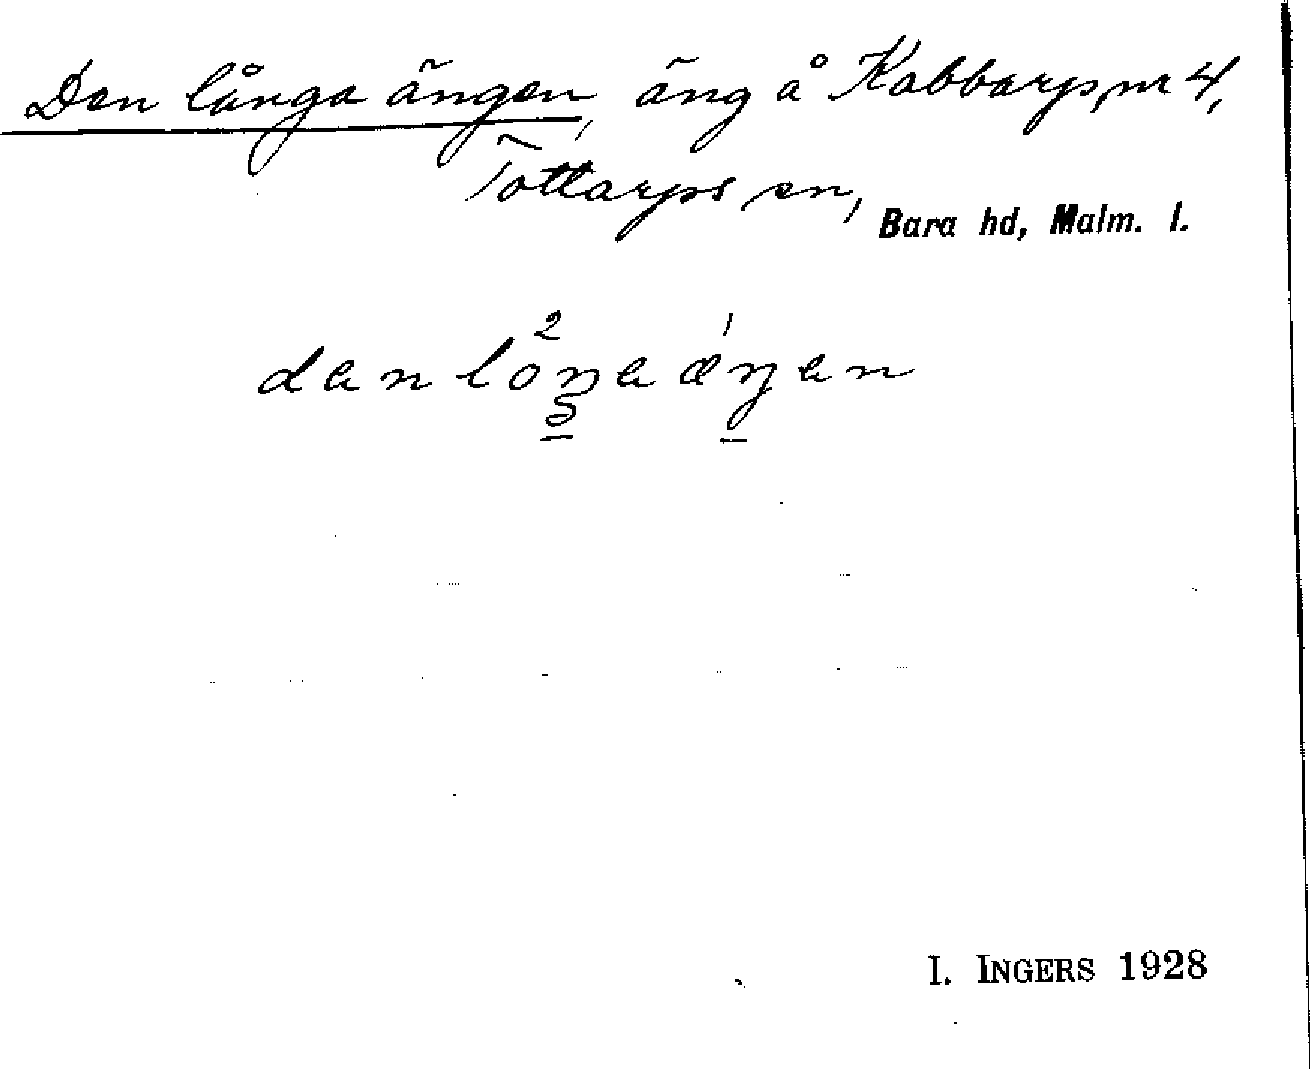 Den långa ängen, äng å Kabbarp nr 4,
Tottarps sn, Bara hd, Malm. l.
den lo²ŋe æ¹ŋen
I. INGERS 1928